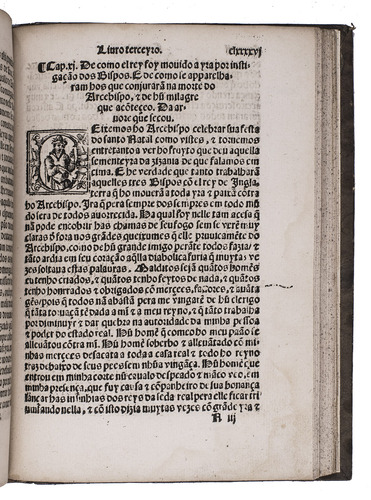 Livro terceyro. clxxxxvj
¶Cap.xj. De como el rey foy movido a yra por insti
gação dos Bispos. E de como se apparelha
ram hos que conjurarã na morte do
Arcebispo, & de hũ milagre
que acõteceo. Da ar-
uore que secou.
Eixemos ho Arcebispo celebrar sua festa
do santo Natal como vistes, & tornemos
entretanto a ver ho fruyto que deu aquella
sementeyra da zizania de que falamos em
cima. E he verdade que tanto trabalharã
aquelles tres Bispos cõ el rey de Ingla
terra q̃ ho moverã a toda yra & paixã cõtra
ho Arcebispo. Ira q̃ pera sempre dos sempres em todo mũ
do sera de todos auorrecida. Na qual foy nelle tam acesa q̃
nã pode encobrir has chamas de seu fogo sem se
claros & fora nos grãdes queixumes que elle
do Arcebispo, como de hũ grande imigo perãte todos fazia: &
tãto ardia em seu coração aq̃lla diabolica furia q̃ muytas ve
zes soltava estas palauras. Malditos sejã quãtos homẽs
eu tenho criados, & quãtos tenho feytos de nada, & quãtos
tenho honrrados & obrigados cõ merçees, & quita
gẽs, pois q̃ todos nã abastã pera me vingarẽ de hũ clerigo
q̃ tãta dã a mĩ & a meu reyno, & q̃ tãto trabalha
por diminuyr & dar quebra na autoridade da minha pessoa
& poder do estado real. Hũ homẽ q̃ comeo ho meu pão se
alleuãtou cõtra mĩ. Hũ homẽ soberbo & alleuãtado cõ mi
nhas merçees desacata a toda a casa real & todo ho reyno
traz debaixo de seus pees sem nhũa vingãça. Hũ homẽ que
entrou em minha corte nũ &
minha presença, que fuy causa & cõpanheiro de sua bonança
lançar has insinhias dos reys da seda real pera elle ficar tri
umfando nella, & cõ isto dizia muytas vezes cõ grãde yra &
R iij